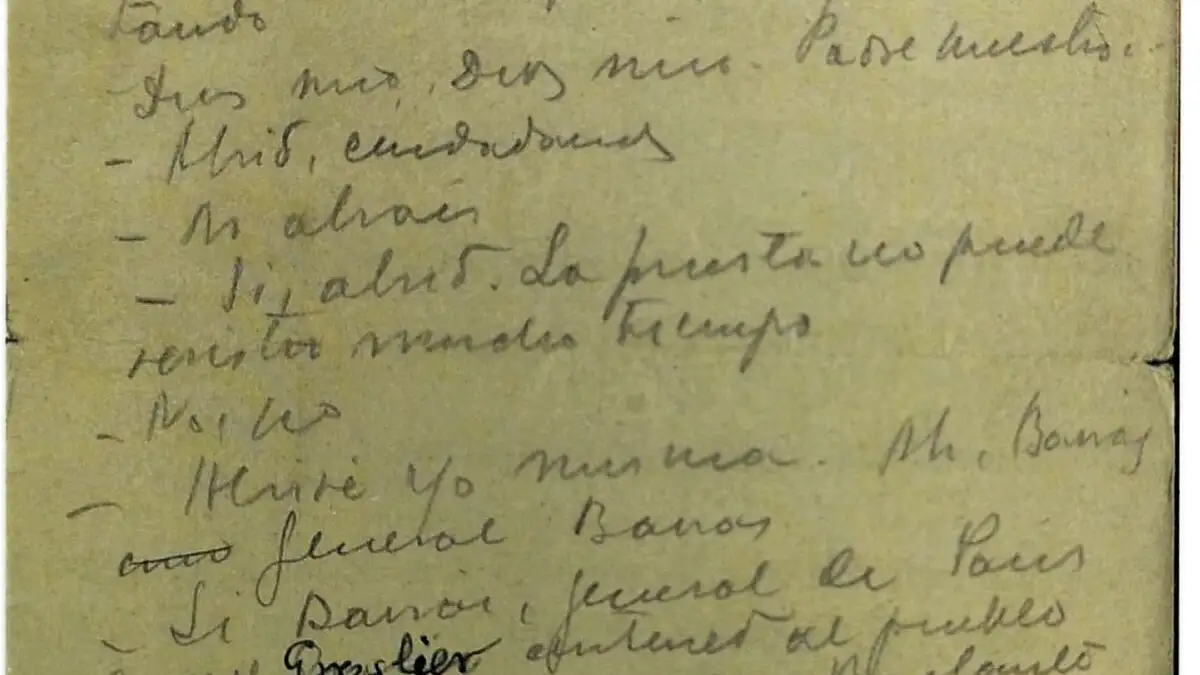 tando
Dios mio, Dios mio. Padre nuestro..
- Abrid, ciudadanos
- No abrais
- Si, abrid. La puerta no puede
resistir mucho tiempo
- No, no
- Abriré yo misma. Ah, Barras
general Barras
- Si Barras, general de Paris
Graslier contened al pueblo